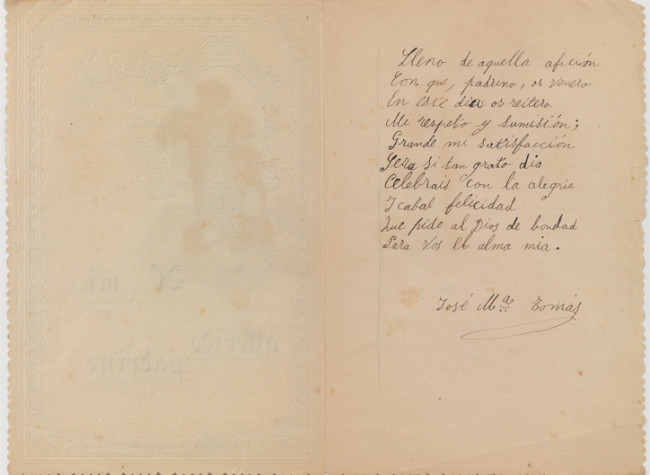 Lleno de aquella afición
Con que, padrino, os venero
En este dia os reitero
Mi respeto y sumisión;
Grande mi satisfacción
Será si tan grato dia
Celebrais con la alegria
Y cabal felicidad
Que pide al Dios de bondad
Para Vos el alma mia.
José Mª Tomás
A mi
querido
padrino